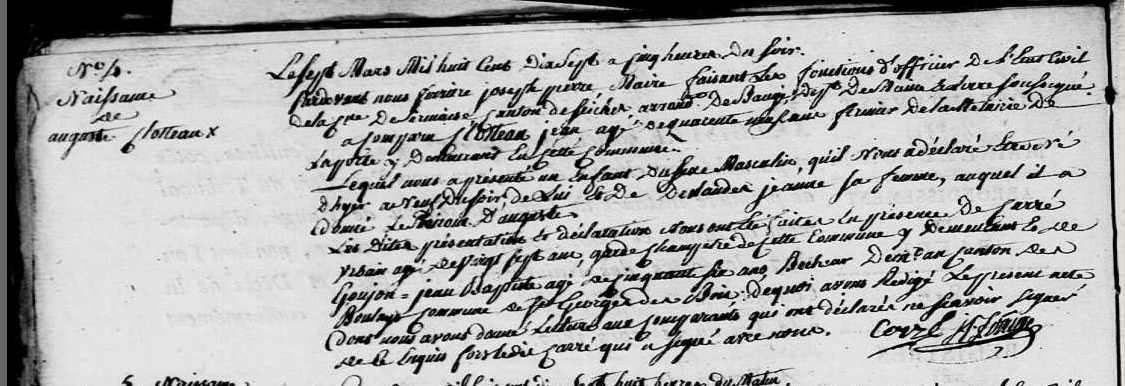 N.o 4.
Naissance
de
auguste Clotteau x
Le sept Mars Mil huit Cent Dix Sept a Cinq heures du soir.
Pardevant nous ferrière joseph pierre, Maire faisant Les fonctions d'officier de L'Etat Civil
de la Cne de Sermaise, Canton de Seiches, arrondt De Baugé, dépt De Maine & Loire soussigné.
a Comparu Clotteau jean agé de quarante ans fermier de la Metairie de
La poite y demeurant En Cette Commune.
Lequel nous a présenté un Enfant du sexe Masculin, qu'il Nous a déclaré Etre né
d'hyer a neuf du soir, de Lui & de Deslandes jeanne sa femme, auquel il a
donné Le Prénom D'auguste.
Les dites présentation & déclaration nous ont Eté faites En présence De Carré
Urbain agé de vingt sept ans, garde Champetre de Cette Commune y Demeurant & de
Goujon = jean Baptiste agé de Cinquante six ans Becheur Demt. au Canton des
Boulays Commune de St Georges des Bois. de quoi avons Redigé Le present acte
Dont nous avons donné Lecture aux Comparants qui ont déclarés ne Scavoir Signer
de Ce Enquis fors ledit Carré qui a Signé avec nous.
5 Naissance
huit heures du Matin